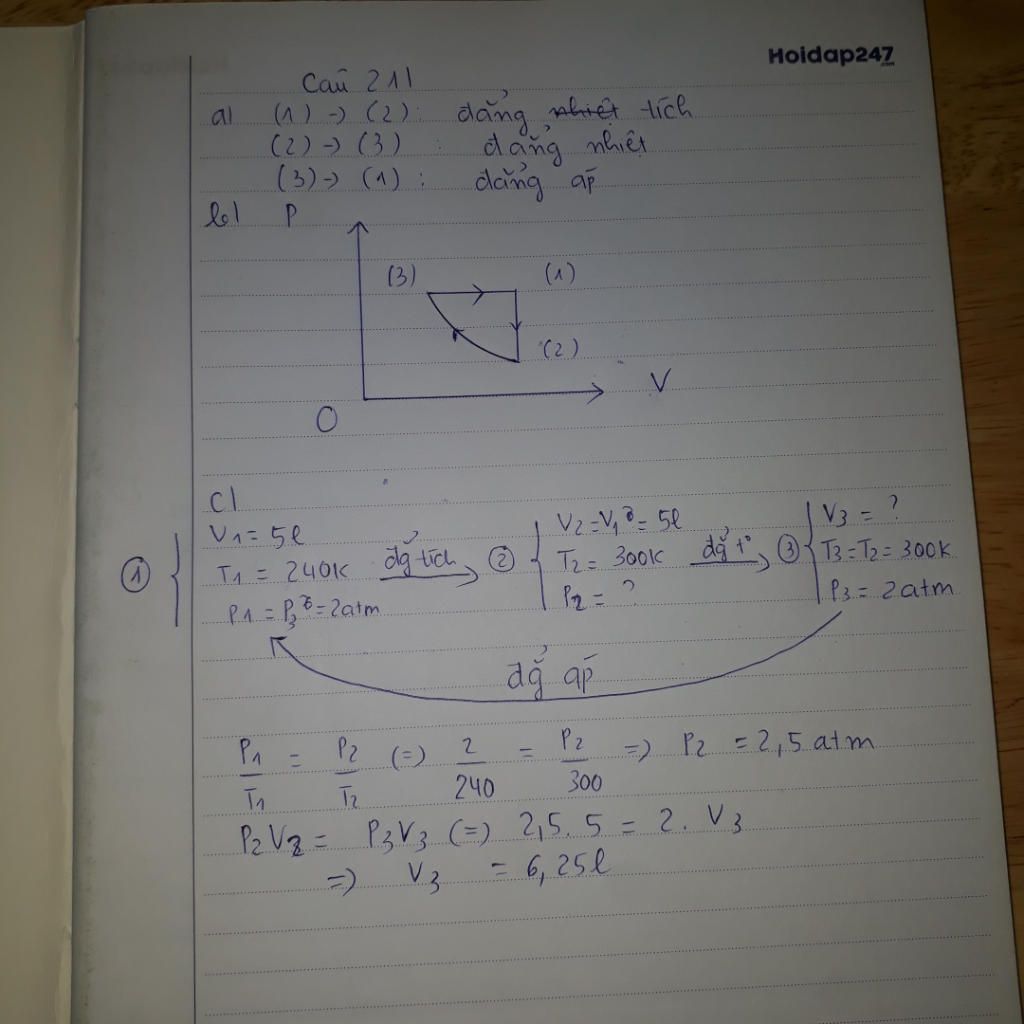 Hoidap247
.com
Câu 21|
a) (1) → (2): đẳng nhiệt tích
(2) → (3) : đẳng nhiệt
(3) → (1) : đẳng áp
b) P
(3) (1)
(2)
V
O
c)
① V1 = 5l
T1 = 240K
P1 = P3 = 2atm
đg tích
② V2 = V1 = 5l
T2 = 300K
P2 = ?
đg t°
③ V3 = ?
T3 = T2 = 300K
P3 = 2atm
đg áp
P1/T1 = P2/T2 (=) 2/240 = P2/300 => P2 = 2,5 atm
P2V2 = P3V3 (=) 2,5. 5 = 2. V3
=) V3 = 6,25l